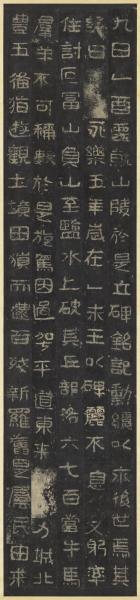 九日乙酉遷就山陵於是立碑銘記勳績以示後世焉其
詞曰永樂五年歲在乙未王以碑麗不息又躬率
住討叵富山負山至鹽水上破其丘部洛六七百當牛馬
羣羊不可稱數於是旋駕因過平道東來力城北
豊五備猶遊觀土境田獵而還百殘新羅舊是屬民由來